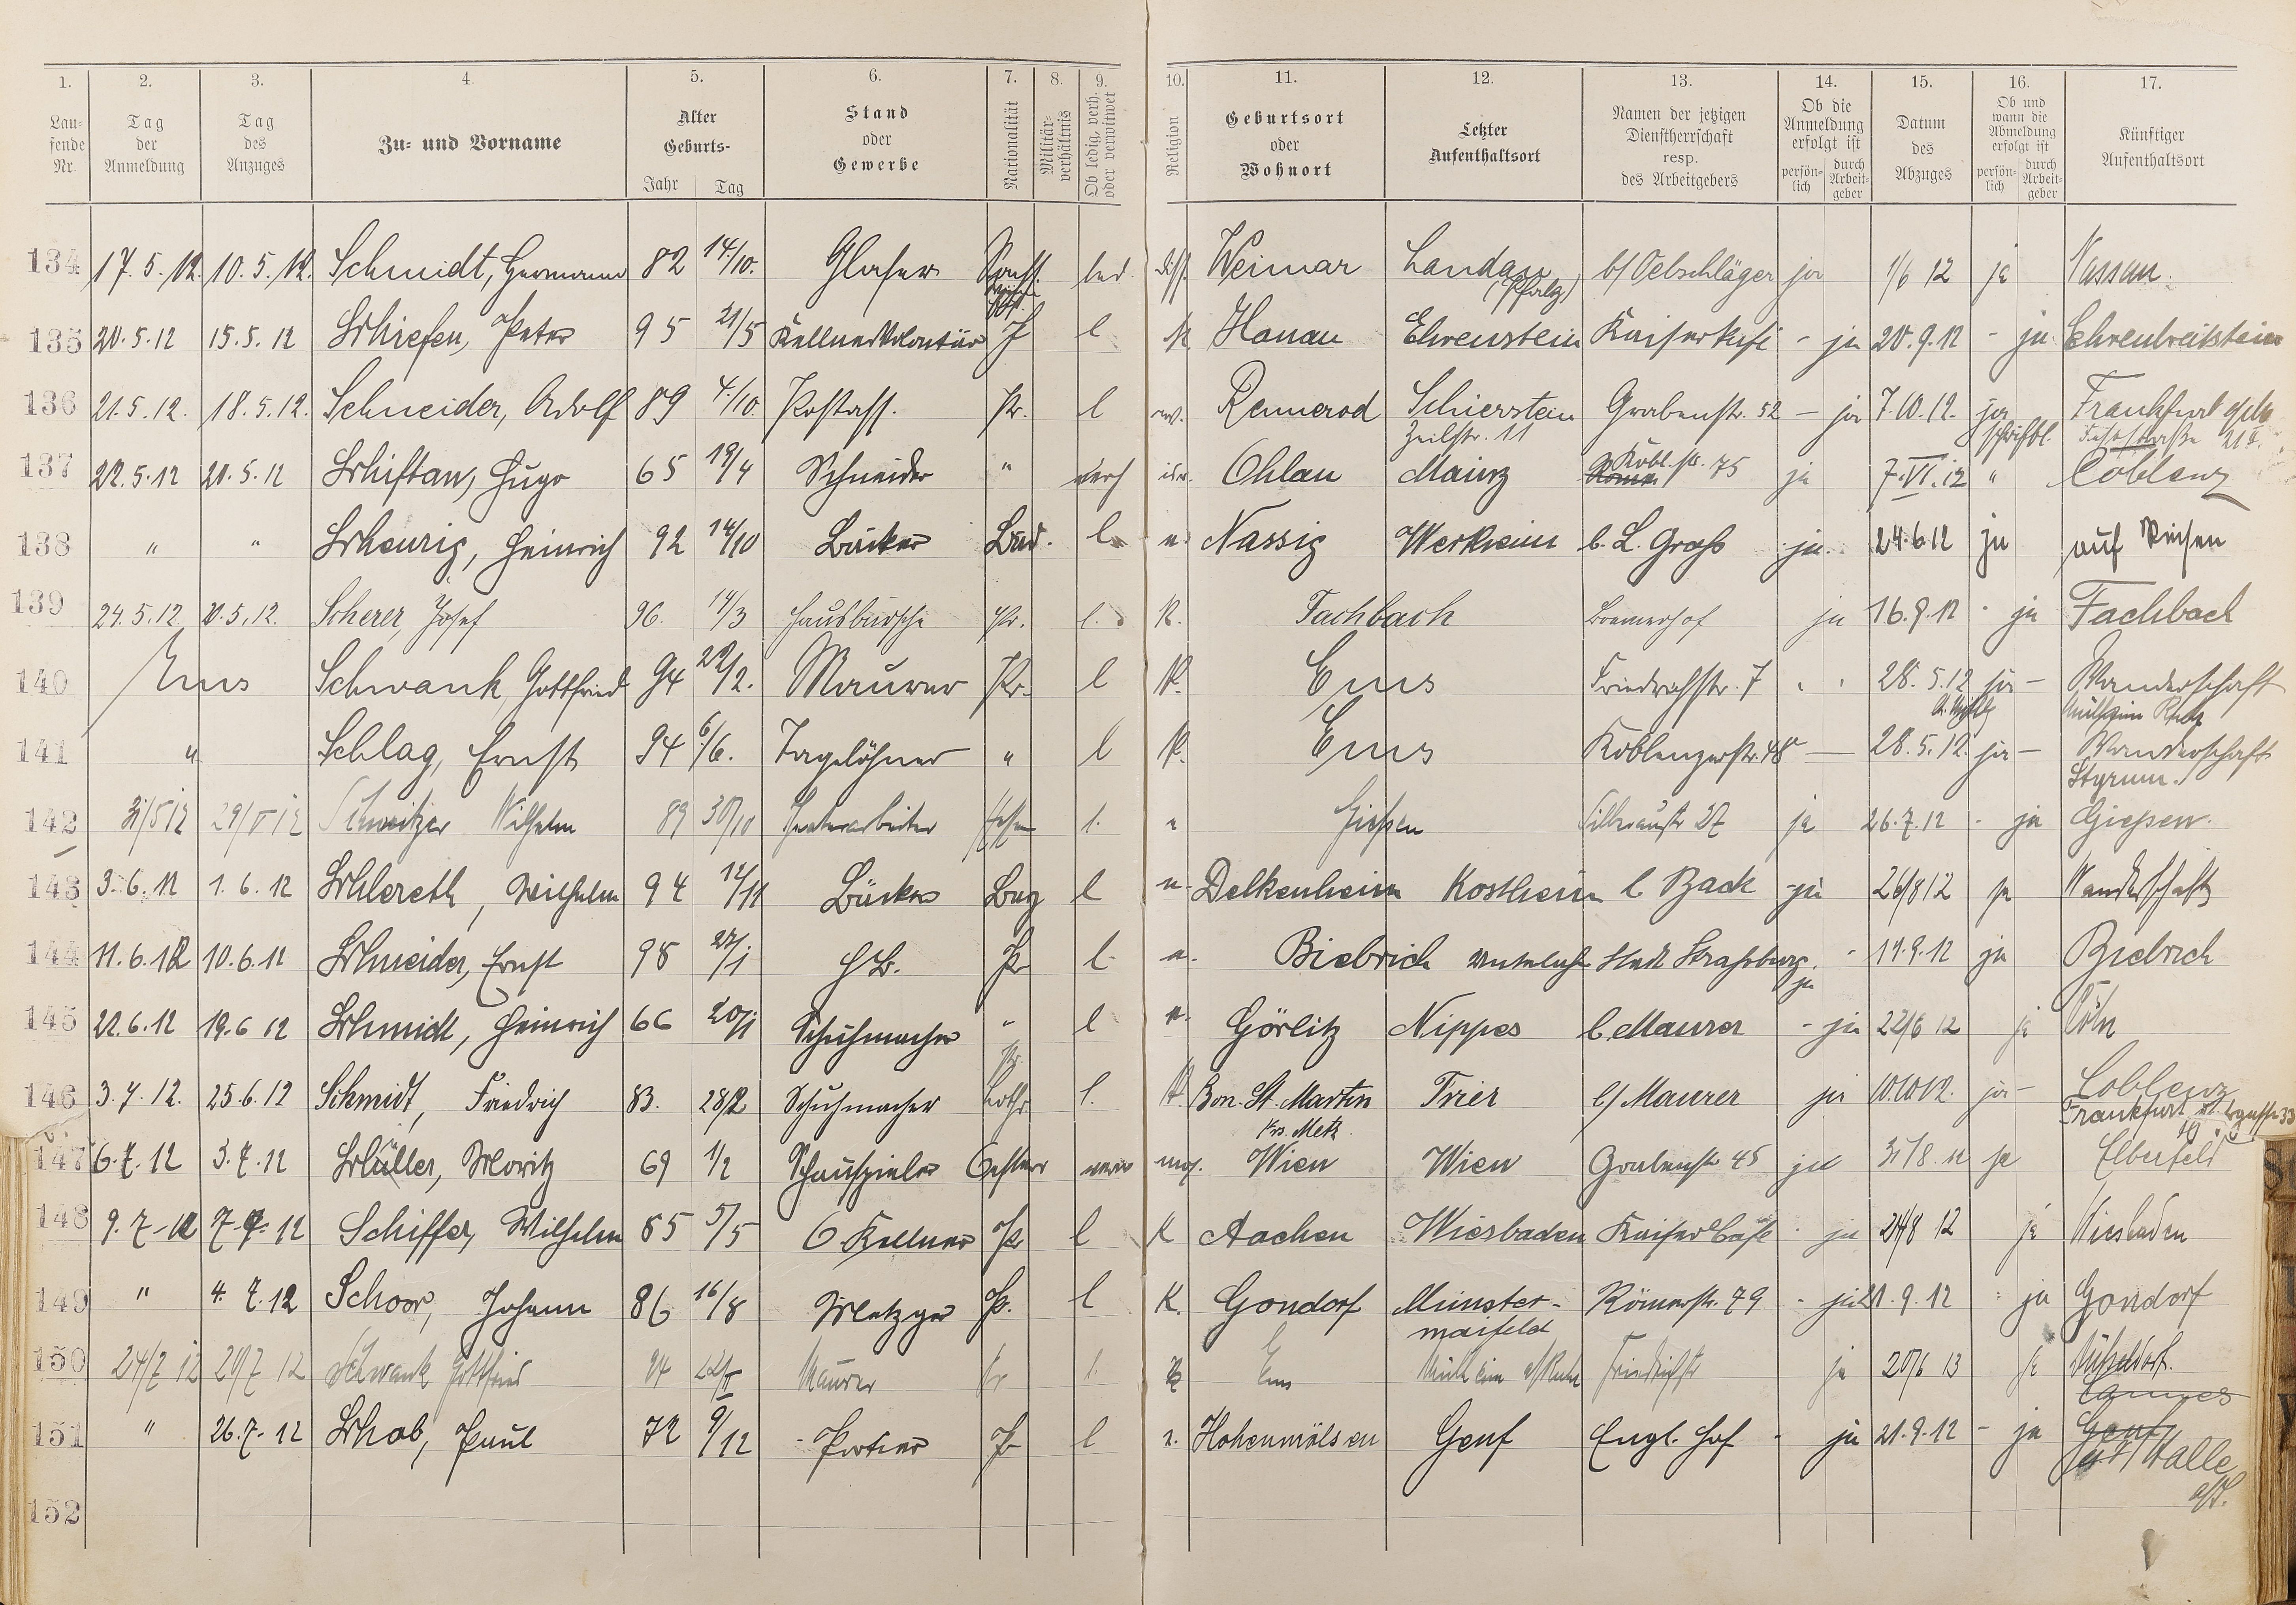 1. 2. 3. 4. 5. 6. 7. 8. 9. 10. 11. 12. 13. 14. 15. 16. 17.
Laufende Nr. Tag der Anmeldung Tag des Anzuges Zu- und Vorname Alter Geburts- Jahr Tag Stand oder Gewerbe Nationalität Militärverhältnis Ob ledig, verh. oder verwitwet Religion Geburtsort oder Wohnort Letzter Aufenthaltsort Namen der jetzigen Dienstherrschaft resp. des Arbeitgebers Ob die Anmeldung erfolgt ist persönlich durch Arbeitgeber Datum des Abzuges Ob und wann die Abmeldung erfolgt ist persönlich durch Arbeitgeber Künftiger Aufenthaltsort
134 17.5.12. 10.5.12. Schmidt, Hermann 82 14./10. Glaser led. Weimar Landau (Pfalz) b/ Oelschläger ja 1/6 12 ja Nassau.
135 20.5.12 15.5.12 Peter 95 21/5 Kellner Volontär l K Hanau Ehrenstein - ja 20.9.12 - ja Ehrenbreitstein
136 21.5.12. 18.5.12. Schneider, Adolf 89 4./10. Postass. Pr. l ev. Rennerod Schierstein Zeilstr. 11 Grabenstr. 52 - ja 7.10.12. ja schriftl. Frankfurt
137 22.5.12 20.5.12 Schiftan, Hugo 65 19/4 Schneider " verh isr. Ohlau Mainz Kobl. str. 75 ja 7.VI.12 " Coblenz
138 " " Scheurig, Heinrich 92 14/10 Bäcker Bad. l Nassig Wertheim b. L. Groß ja. 24.6.12 ja auf Reisen
139 24.5.12 Scherer, Josef 96. 14/3 Hausbursche Pr. l. K. Fachbach ja 16.9.12 - ja Fachbach
140 Ems Schwank, Gottfried 94 22/2. Maurer Pr. l K. Ems Friedrichstr. 7 28.5.12 ja - Wanderschaft
141 " Schlag, Ernst 94 6/6. Tagelöhner " l K. Ems Koblenzerstr. 48 — 28.5.12. ja - Wanderschaft Styrum.
142 31/5 12 29/V 12 Schweitzer Wilhelm 89 30/10 l. Gießen ja 26.7.12 - ja Giessen.
143 3.6.12 1.6.12 Schlereth, Wilhelm 94 12/11 Bäcker l Delkenheim Kostheim b Back ja 26/8 12 ja Wanderschaft
144 11.6.12 10.6.12 Schneider, Ernst 98 27/1 Pr l. Biebrich Stadt Straßburg. ja 11.9.12 ja Biebrich
145 22.6.12 19.6 12 Schmidt, Heinrich 66 20/1 Schuhmacher " l Görlitz Nippes b. Maurer - ja 22/6 12 ja Cöln
146 3.7.12. 25.6.12 Schmidt, Friedrich 83. 28/2 Schuhmacher Pr. Lothr. l. K. Ban-St. Martin Krs. Metz. Trier b/ Maurer ja 10.10 12. ja - Coblenz
147 6.7.12 3.7.12 Moritz 69 1/2 Schauspieler Wien Wien Grabenstr 45 ja 31/8.12 ja Frankfurt Elberfeld
148 9.7.12 7.7.12 Schiffer, Wilhelm 85 5/5 O. Kellner Pr l K Aachen Wiesbaden Kaiser Café - ja 24/8 12 ja Wiesbaden
149 " 4.7.12 Schoor, Johann 86 16/8 Metzger Pr. l K. Gondorf Münstermaifeld Römerstr. 79 - ja 21.9.12 - ja Gondorf
150 24/7 12 20/7 12 Schwank Gottfried 94 22/II Maurer Pr l. K Ems Mülheim a/Ruhr Friedrichstr ja 20/6 13 ja
151 " 26.7.12 Schob, Paul 72 9/12 - Portier Pr l Hohenmölsen Genf Engl. Hof - ja 21.9.12 - ja Cannes Genf Halle a/S.
152